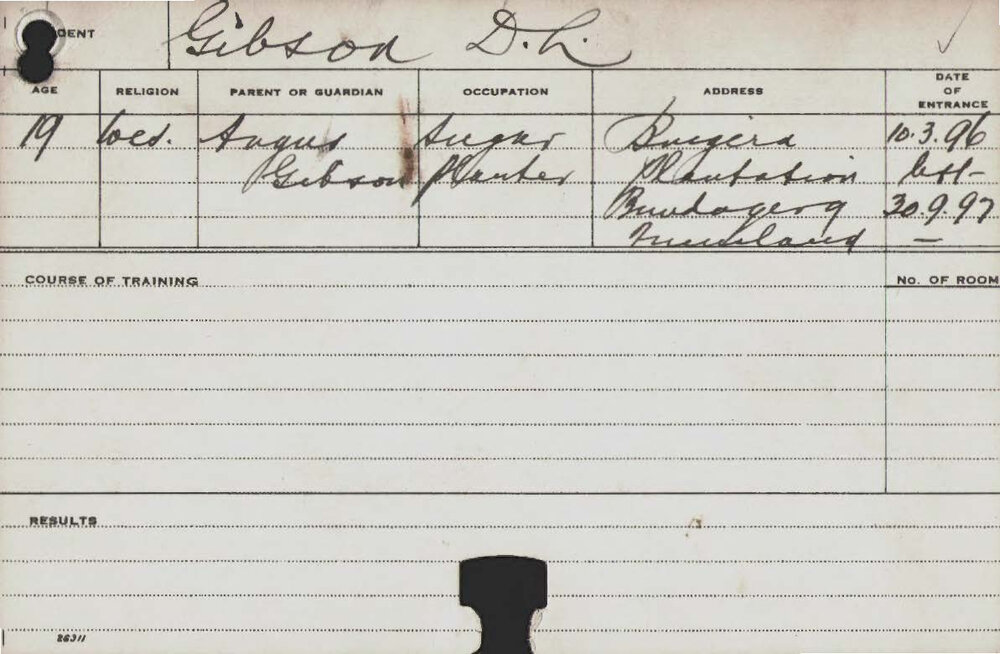 DENT Gibson D.L.
AGE RELIGION PARENT OR GUARDIAN OCCUPATION ADDRESS DATE OF ENTRANCE
19 Wes. Angus Sugar Bingera 10.3.96
Gibson Planter Plantation left-
Bundaberg 30.9.97
Queensland —
COURSE OF TRAINING No. OF ROOM
RESULTS
26311